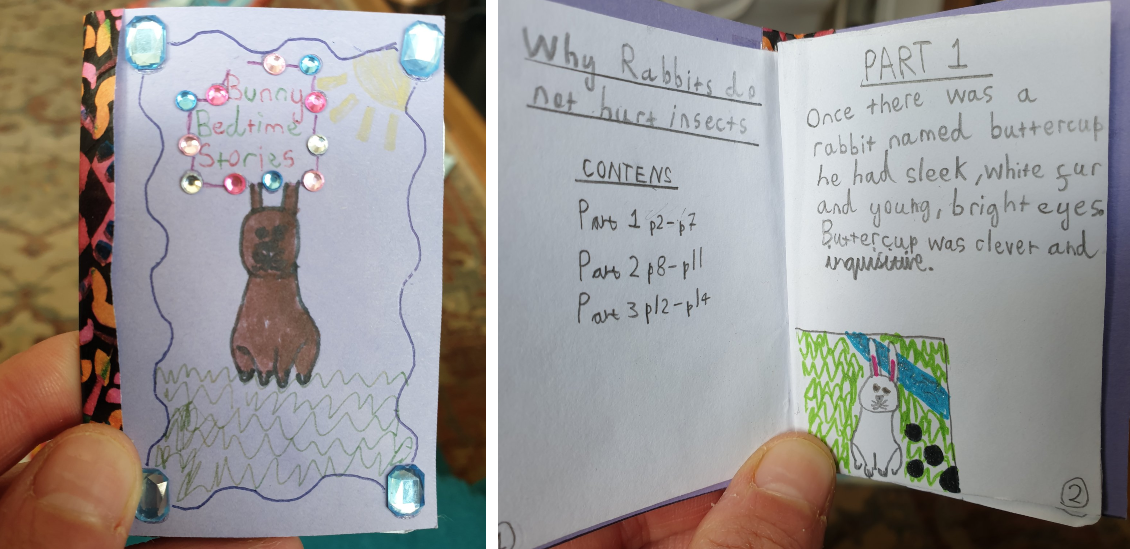 Bunny
Bedtime
Stories
Why Rabbits do
not hurt insects
CONTENS
Part 1 p2-p7
Part 2 p8-p11
Part 3 p12-p14
1
PART 1
Once there was a
rabbit named buttercup
he had sleek, white fur
and young, bright eyes.
Buttercup was clever and
inquisitive.
2